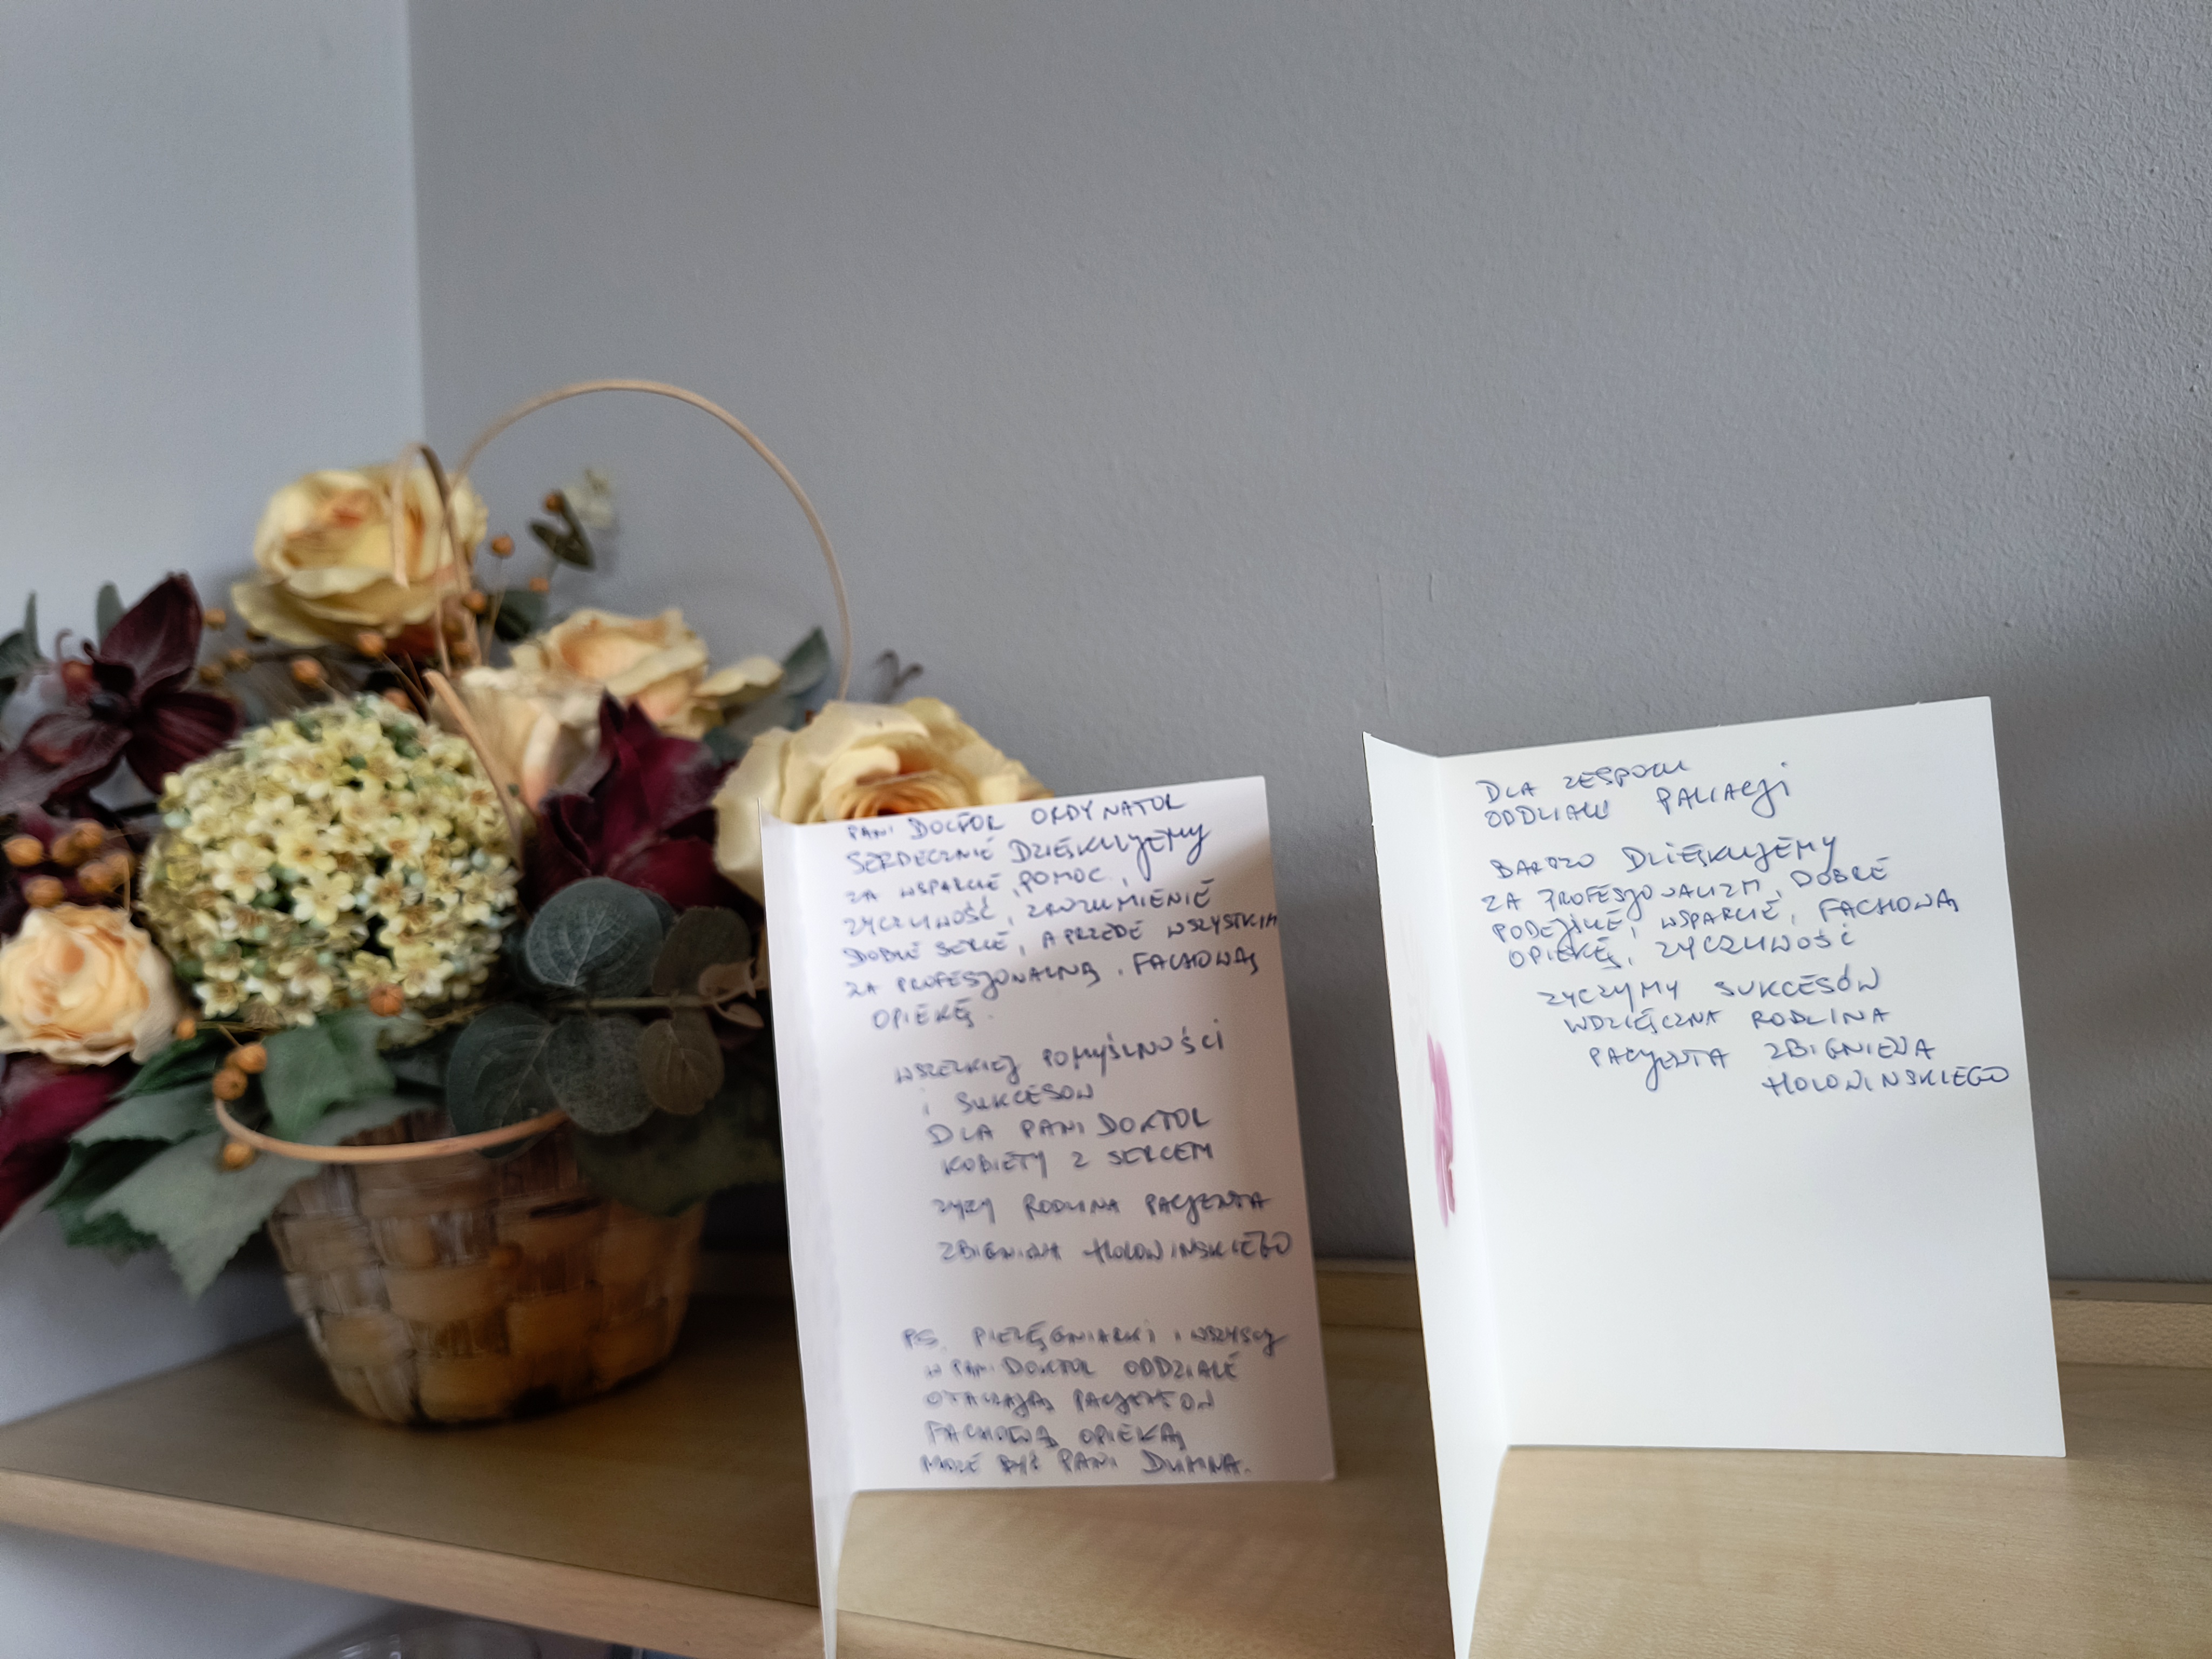 PANI DOCTOR ORDYNATOR
SERDECZNIE DZIĘKUJEMY
ZA WSPARCIE, POMOC,
ŻYCZLIWOŚĆ, ZROZUMIENIE
DOBRE SERCE, A PRZEDE WSZYSTKIM
ZA PROFESJONALNĄ, FACHOWĄ
OPIEKĘ.
WSZELKIEJ POMYŚLNOŚCI
I SUKCESÓW
DLA PANI DOKTOR
KOBIETY Z SERCEM
ŻYCZY RODZINA PACJENTA
ZBIGNIEWA HOLOWINSKIEGO
PS. PIELĘGNIARKI I WSZYSCY
W PANI DOKTOR ODDZIALE
OTACZAJĄ PACJENTÓW
FACHOWĄ OPIEKĄ
MOŻE BYĆ PANI DUMNA.
DLA ZESPOŁU
ODDZIAŁU PALIACJI
BARDZO DZIĘKUJEMY
ZA PROFESJONALIZM, DOBRE
PODEJŚCIE, WSPARCIE, FACHOWĄ
OPIEKĘ, ŻYCZLIWOŚĆ
ŻYCZYMY SUKCESÓW
WDZIĘCZNA RODZINA
PACJENTA ZBIGNIEWA
HOLOWINSKIEGO